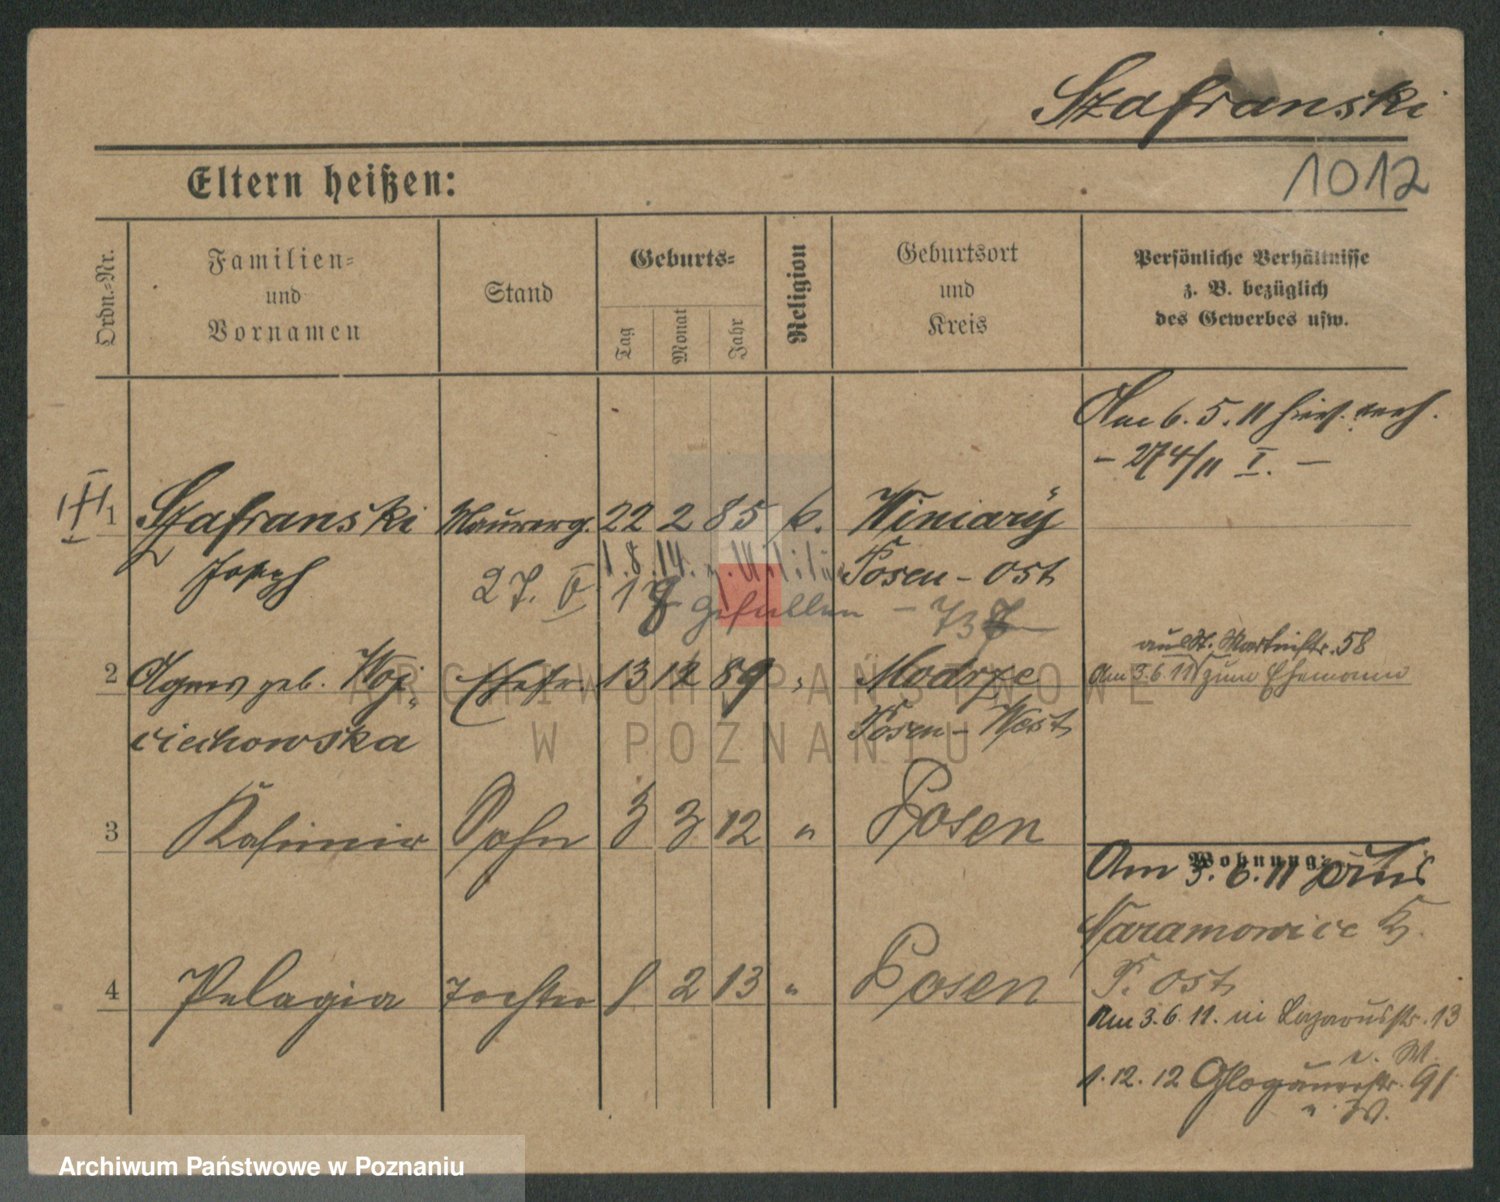 Szafranski
1012
Eltern heißen:
Ordn.-Nr.
Familien-
und
Vornamen
Stand
Geburts-
Tag
Monat
Jahr
Religion
Geburtsort
und
Kreis
Persönliche Verhältnisse
z. B. bezüglich
des Gewerbes usw.
Am 6. 5. 11 hier verh.
- 274/11 I. -
1 Szafranski Maurerg. 22 2 85 k. Winiary
Joseph Posen-Ost
1.8.14. z. Militär
27. V. 18 gefallen - 737
2 Agnes geb. Woj- Ehefr. 13 12 89 " Modrze
ciechowska Posen-West
aus St. Martinstr. 58
Am 3.6.11 zum Ehemann
3 Kasimir Sohn 3 3 12 " Posen
4 Pelagia Tochter 8 2 13 " Posen
Wohnung:
Am 3. 6. 11 aus
Naramowice K.
P. Ost
Am 3. 6. 11. in Lazarusstr. 13
b. W.
1. 12. 12 Glogauerstr. 91
b. W.
ARCHIWUM PAŃSTWOWE
W POZNANIU
Archiwum Państwowe w Poznaniu